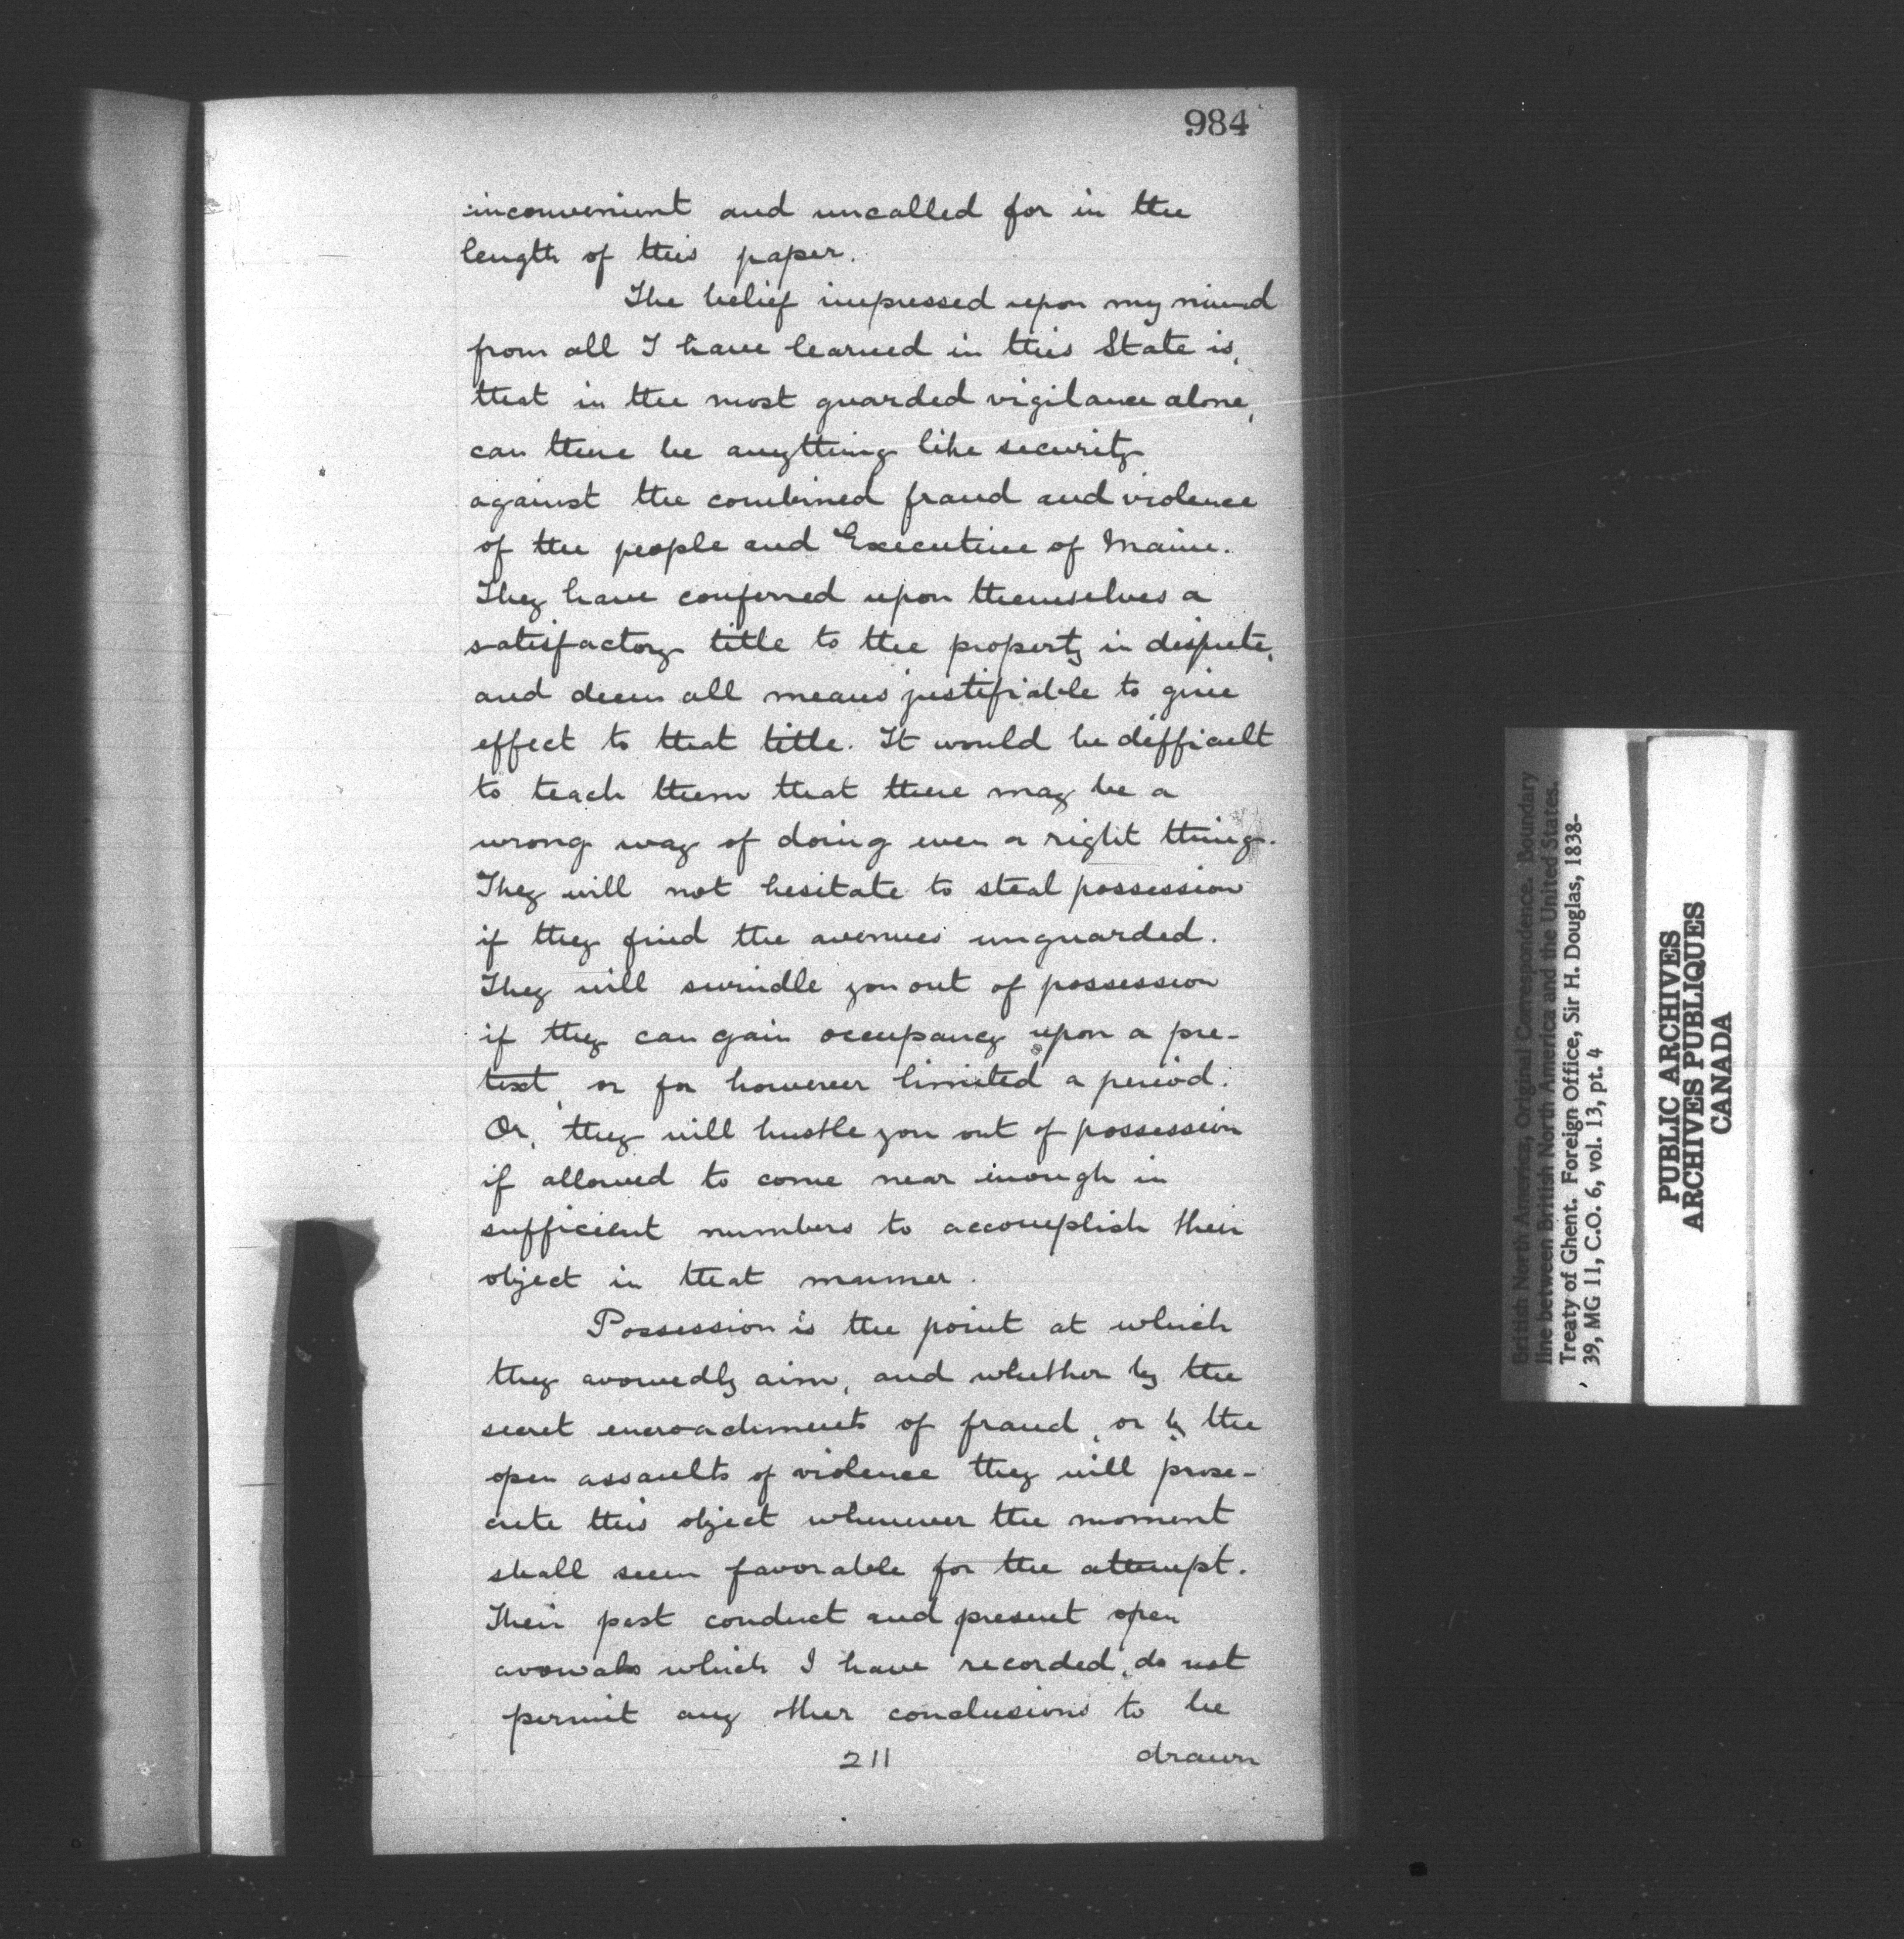 984
inconvenient and uncalled for in the
length of this paper.
The belief impressed upon my mind
from all I have learned in this State is,
that in the most guarded vigilance alone,
can there be anything like security
against the combined fraud and violence
of the people and Executive of Maine.
They have conferred upon themselves a
satisfactory title to the property in dispute,
and deem all means justifiable to give
effect to that title. It would be difficult
to teach them that there may be a
wrong way of doing even a right thing.
They will not hesitate to steal possession
if they find the avenues unguarded.
They will swindle you out of possession
if they can gain occupancy upon a pre-
text, or for however limited a period.
Or, they will hustle you out of possession
if allowed to come near enough in
sufficient numbers to accomplish their
object in that manner.
Possession is the point at which
they avowedly aim, and whether by the
secret encroachments of fraud, or by the
open assaults of violence they will prose-
cute this object whenever the moment
shall seem favorable for the attempt.
Their past conduct and present open
avowals which I have recorded, do not
permit any other conclusions to be
211 drawn
British North America, Original Correspondence. Boundary
line between British North America and the United States.
Treaty of Ghent. Foreign Office, Sir H. Douglas, 1838-
39, MG 11, C.O. 6, vol. 13, pt. 4
PUBLIC ARCHIVES
ARCHIVES PUBLIQUES
CANADA